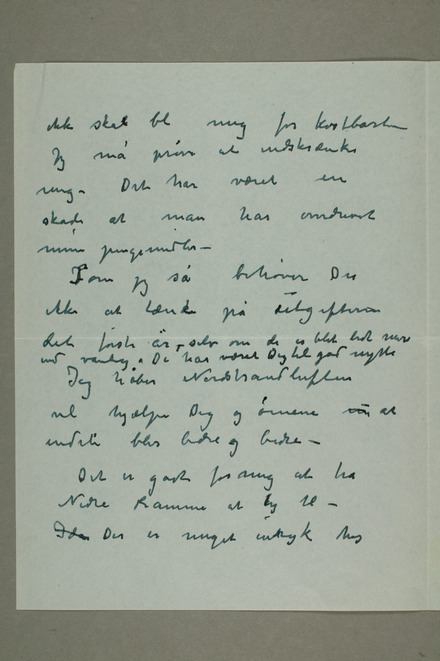 ikke skal bli mig for kostbart
Jeg må prøve at indskrænke
mig – Det har været en
skade at man har overdrevet
mine pengemidler –
Som jeg sa behøver Du
ikke at tænke på utgifterne
det første år – selv om de er blet lidt mere
end vanlig. Det har været Dig til god nytte
Jeg håber Nordstrandluften
vil hjælpe Dig og øinene at
endeli blir bedre og bedre –
Det er godt for mig at ha
Nedre Ramme at ty til –
Der er meget inbryk hos